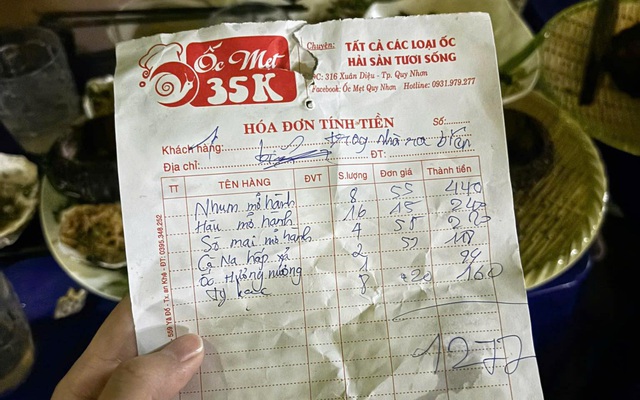 Ốc Mẹt
35K
Chuyên: TẤT CẢ CÁC LOẠI ỐC
HẢI SẢN TƯƠI SỐNG
ĐC: 316 Xuân Diệu - Tp. Quy Nhơn
Facebook: Ốc Mẹt Quy Nhơn Hotline: 0931.979.277
HÓA ĐƠN TÍNH TIỀN Số:
Khách hàng: trong nhà ra bàn
Địa chỉ: ĐT:
TT TÊN HÀNG ĐVT S.lượng Đơn giá Thành tiền
Nhum mỡ hành 8 55 440
Hàu mỡ hành 16 15 240
Sò mai mỡ hành 4 55 220
hấp xả 2 59 118
Ốc Hương nướng 1 99
8 20 160
1277
ĐT: 0395.348.252